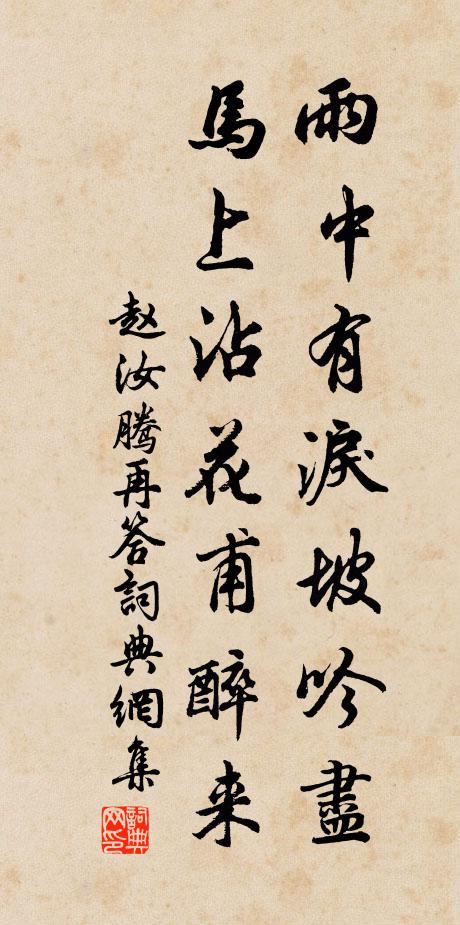 雨中有淚坡吟盡
馬上沾花甫醉来
赵汝騰再答詞典網集
詞典网印